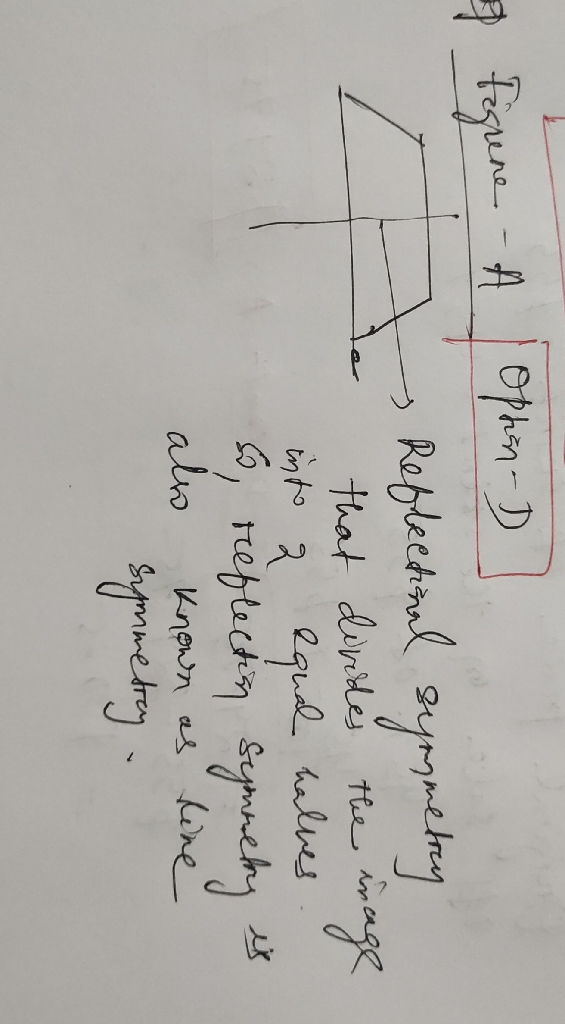 Figure - A
Option - D
Reflectional symmetry
that divides the image
into 2 equal halves.
So, reflection symmetry is
also known as line
symmetry.